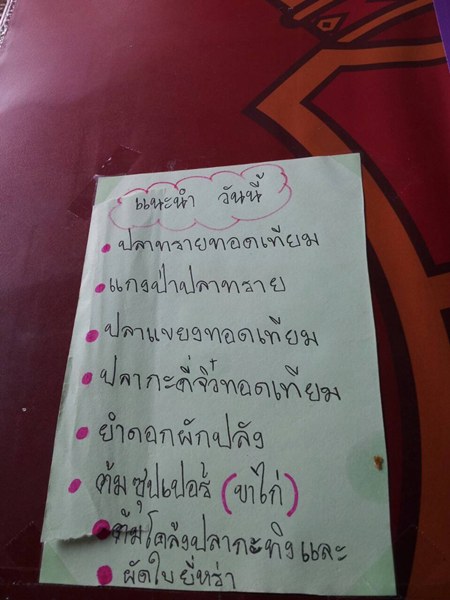 แนะนำ วันนี้
ปลาทรายทอดเทียม
แกงป่าปลาทราย
ปลาแขยงทอดเทียม
ปลากะดี่จิ๋วทอดเทียม
ยำดอกผักปลัง
ต้มซุปเปอร์ (ขาไก่)
ต้มโคล้งปลากะทิงและ
ผัดใบยี่หร่า